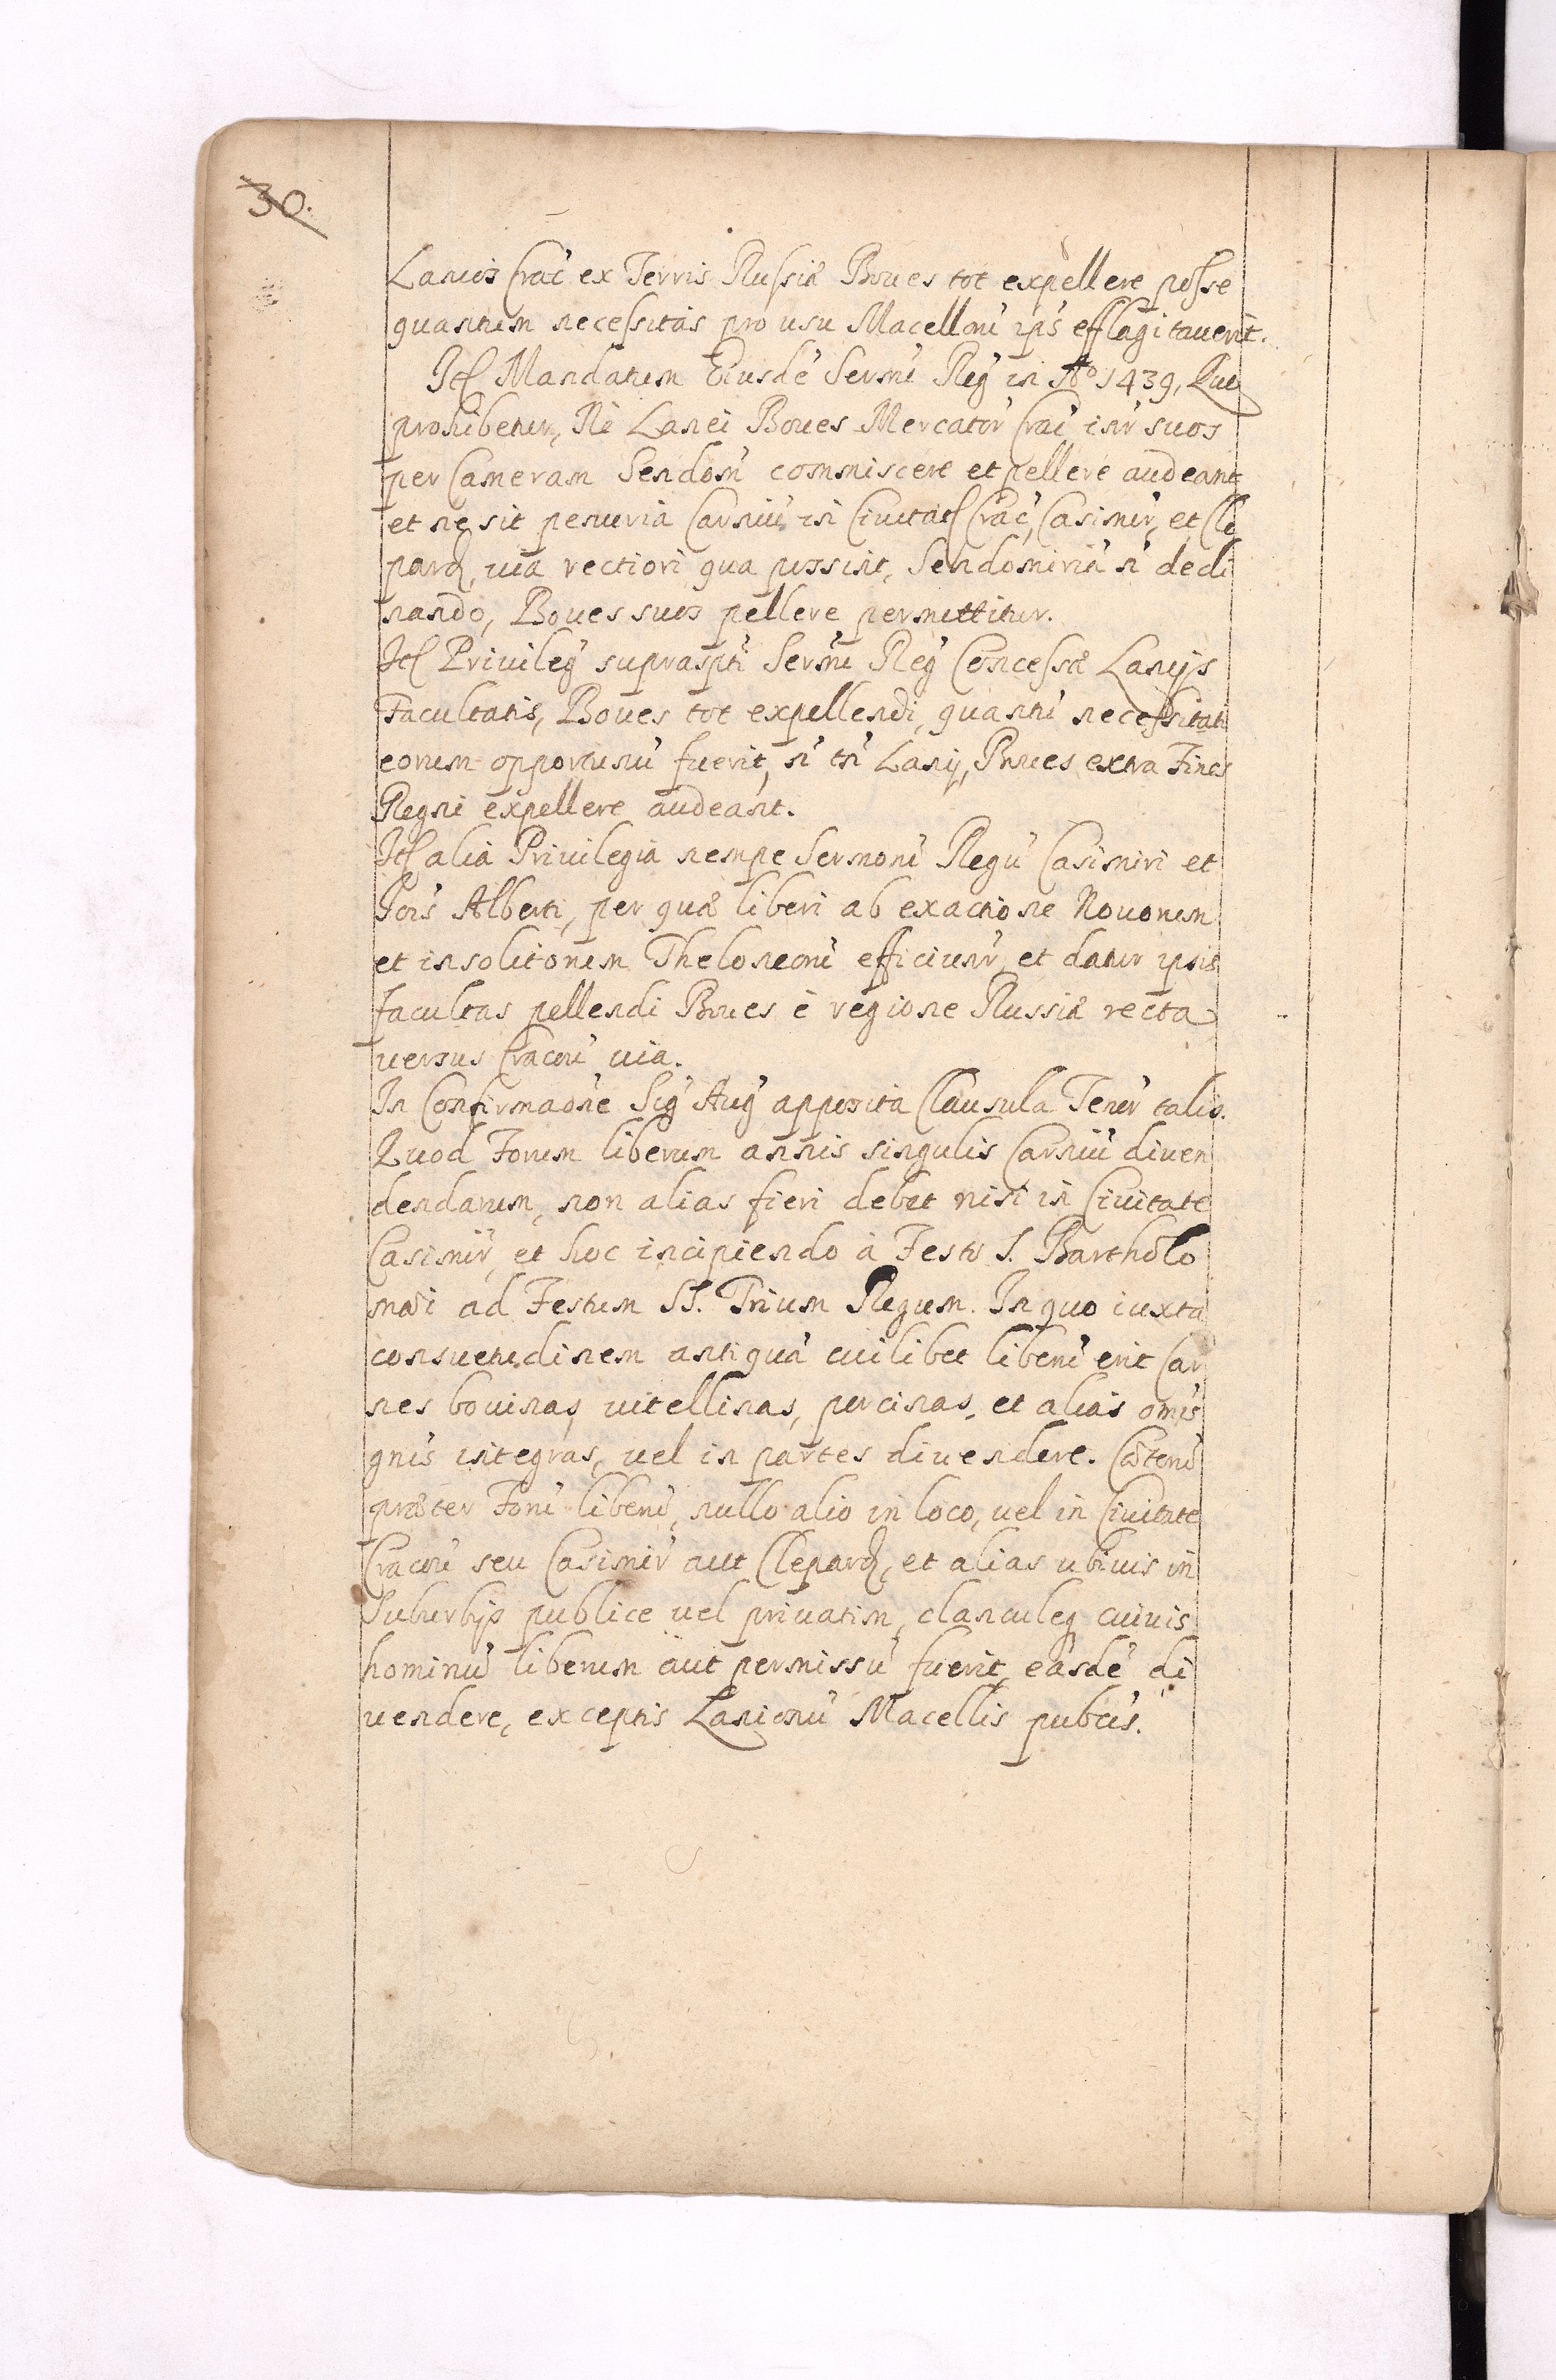 30.
Lanios Crac̄ ex Terris Russiæ Boues tot expellere posse
quantum necessitas pro usu Macelloru᷃ ips᷃ efflagitauerit.
Itꝭ Mandatum Eiusdē Sermī Reg᷃ in Aº 1439, Quo
prohibetur, Ne Lanei Boues Mercator᷃ Crac̄ int᷃ suos
per Cameram Sendom᷃ commiscere et pellere audeant
et ne sit penuria Carniū in Ciuitatꝭ Crac̄, Casimir᷃, et Cle
pardꝭ, via rectiori qua possint, Sendomiriā n᷃ decli
nando, Boues suos pellere permittitur.
Itꝭ Priuileg᷃ suprasptī Sermī Reg᷃ Concessæ Lanijs
Facultatis, Boues tot expellendi, quantū necessitati
eorum opportunū fuerit, n᷃ tn᷃ Lanij, Boues extra Fines
Regni expellere audeant.
Itꝭ alia Priuilegia nempe Sermorū Regū Casimiri et
Jois᷃ Alberti, per quæ liberi ab exactione Nouorum
et insolitorum Theloneorū efficiunt᷃, et datur ipsis
facultas pellendi Boues è regione Russiæ recta
versus Cracou᷃ via.
In Confirmaōne Sig᷃ Aug᷃ apposita Clausula Tenor᷃ talis.
Quod Forum liberum annis singulis Carniū diuen
dendarum, non alias fieri debet nisi in Ciuitate
Casimir᷃, et hoc incipiendo à Festo S. Bartholo
mæi ad Festum SS. Trium Regum. In quo iuxta
consuetudinem antiquā cuilibet liberū erit Car
nes bouinas, vitellinas, porcinas, et alias omīs
gn᷃is integras, vel in partes diuendere. Cæterū
præter Forū liberū, nullo alio in loco, vel in Ciuitate
Cracou᷃ seu Casimir᷃ aut Clepardꝭ, et alias ubiuis in
Suburbijs publice vel priuatim, clanculeq cuiuis
hominū liberum aut permissū fuerit, easdē di
uendere, exceptis Lanionū Macellis pubcis᷃.